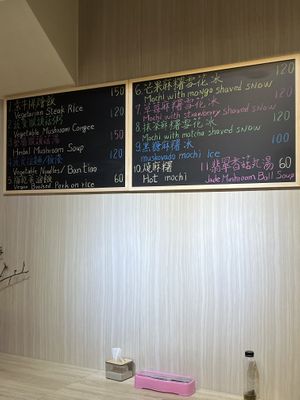 素牛排燴飯 150
Vegetarian Steak Rice
120
Vegetable Mushroom Congee
150
Herbal Mushroom Soup
120
Vegetable Noodles / Ban tiao
60
Vegie Braised Pork on rice
6. 芒果麻糬雪花冰
Mochi with mango shaved snow
120
7. 草莓麻糬雪花冰
Mochi with strawberry shaved snow
120
8. 抹茶麻糬雪花冰
Mochi with matcha shaved snow
120
9. 黑糖麻糬冰 100
muskovado mochi Ice
10. 燒麻糬
Hot mochi
11. 翡翠香菇丸湯 60
Jade Mushroom Ball Soup